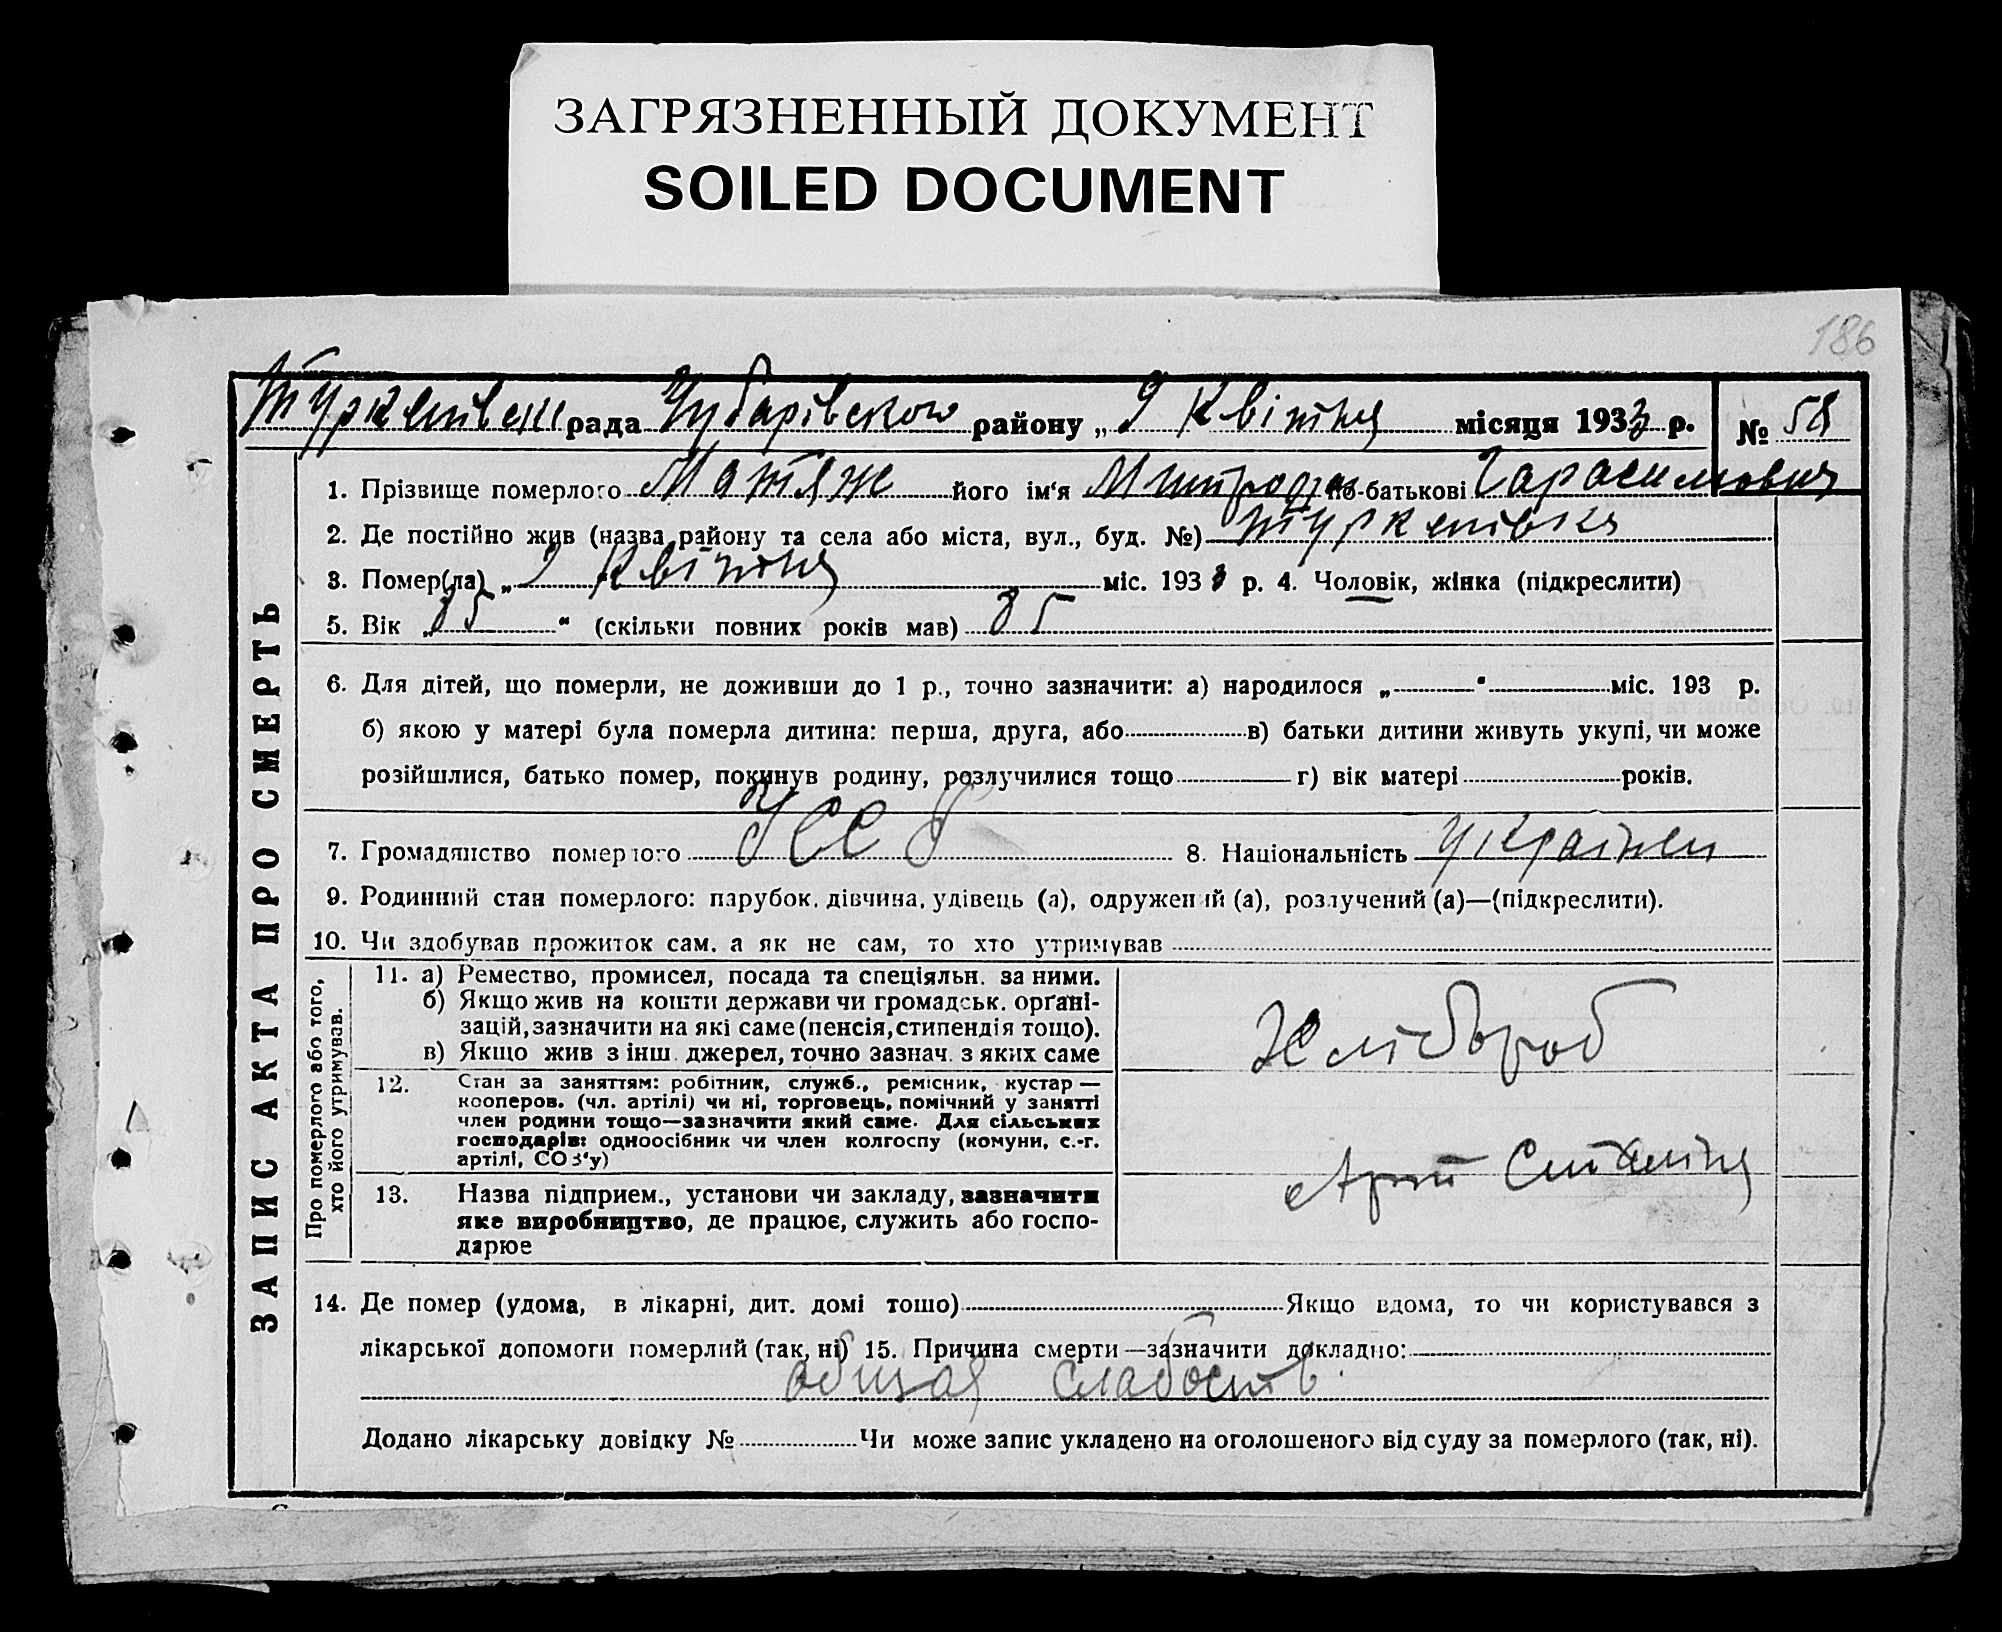 ЗАГРЯЗНЕННЫЙ ДОКУМЕНТ
SOILED DOCUMENT
186
Туркенівськ рада Чубарівского району „ 9 Квітня місяця 1933 р. № 58
1. Прізвище померлого Мотяж його ім‘я Митрофан по-батькові Гарасимович
2. Де постійно жив (назва району та села або міста, вул., буд. №) Туркенівка
3. Помер(ла) „ 9 Квітня міс. 1933 р. 4. Чоловік, жінка (підкреслити)
5. Вік „ 85 “ (скільки повних років мав) 85
6. Для дітей, що померли, не доживши до 1 р., точно зазначити: а) народилося „ “ міс. 193 р.
б) якою у матері була померла дитина: перша, друга, або в) батьки дитини живуть укупі, чи може
розійшлися, батько помер, покинув родину, розлучилися тощо г) вік матері років.
7. Громадянство померлого УССР 8. Національність українец
9. Родинний стан померлого: парубок, дівчина, удівець (а), одружений (а), розлучений (а)—(підкреслити).
10. Чи здобував прожиток сам, а як не сам, то хто утримував
ЗАПИС АКТА ПРО СМЕРТЬ
Про померлого або того,
хто його утримував.
11. а) Ремество, промисел, посада та спеціяльн. за ними.
б) Якщо жив на кошти держави чи громадськ. організацій, зазначити на які саме (пенсія, стипендія тощо).
в) Якщо жив з інш. джерел, точно зазнач. з яких саме
Хлібороб
12. Стан за заняттям: робітник, служб., ремісник, кустар —
кооперов. (чл. артілі) чи ні, торговець, помічний у занятті
член родини тощо—зазначити який саме. Для сільських
господарів: одноосібник чи член колгоспу (комуни, с.-г.
артілі, СОЗ‘у)
13. Назва підприєм., установи чи закладу, зазначити
яке виробництво, де працює, служить або господарює
14. Де помер (удома, в лікарні, дит. домі тощо) Якщо вдома, то чи користувався з
лікарської допомоги померлий (так, ні) 15. Причина смерти—зазначити докладно:
общая слабость
Додано лікарську довідку № Чи може запис укладено на оголошеного від суду за померлого (так, ні).